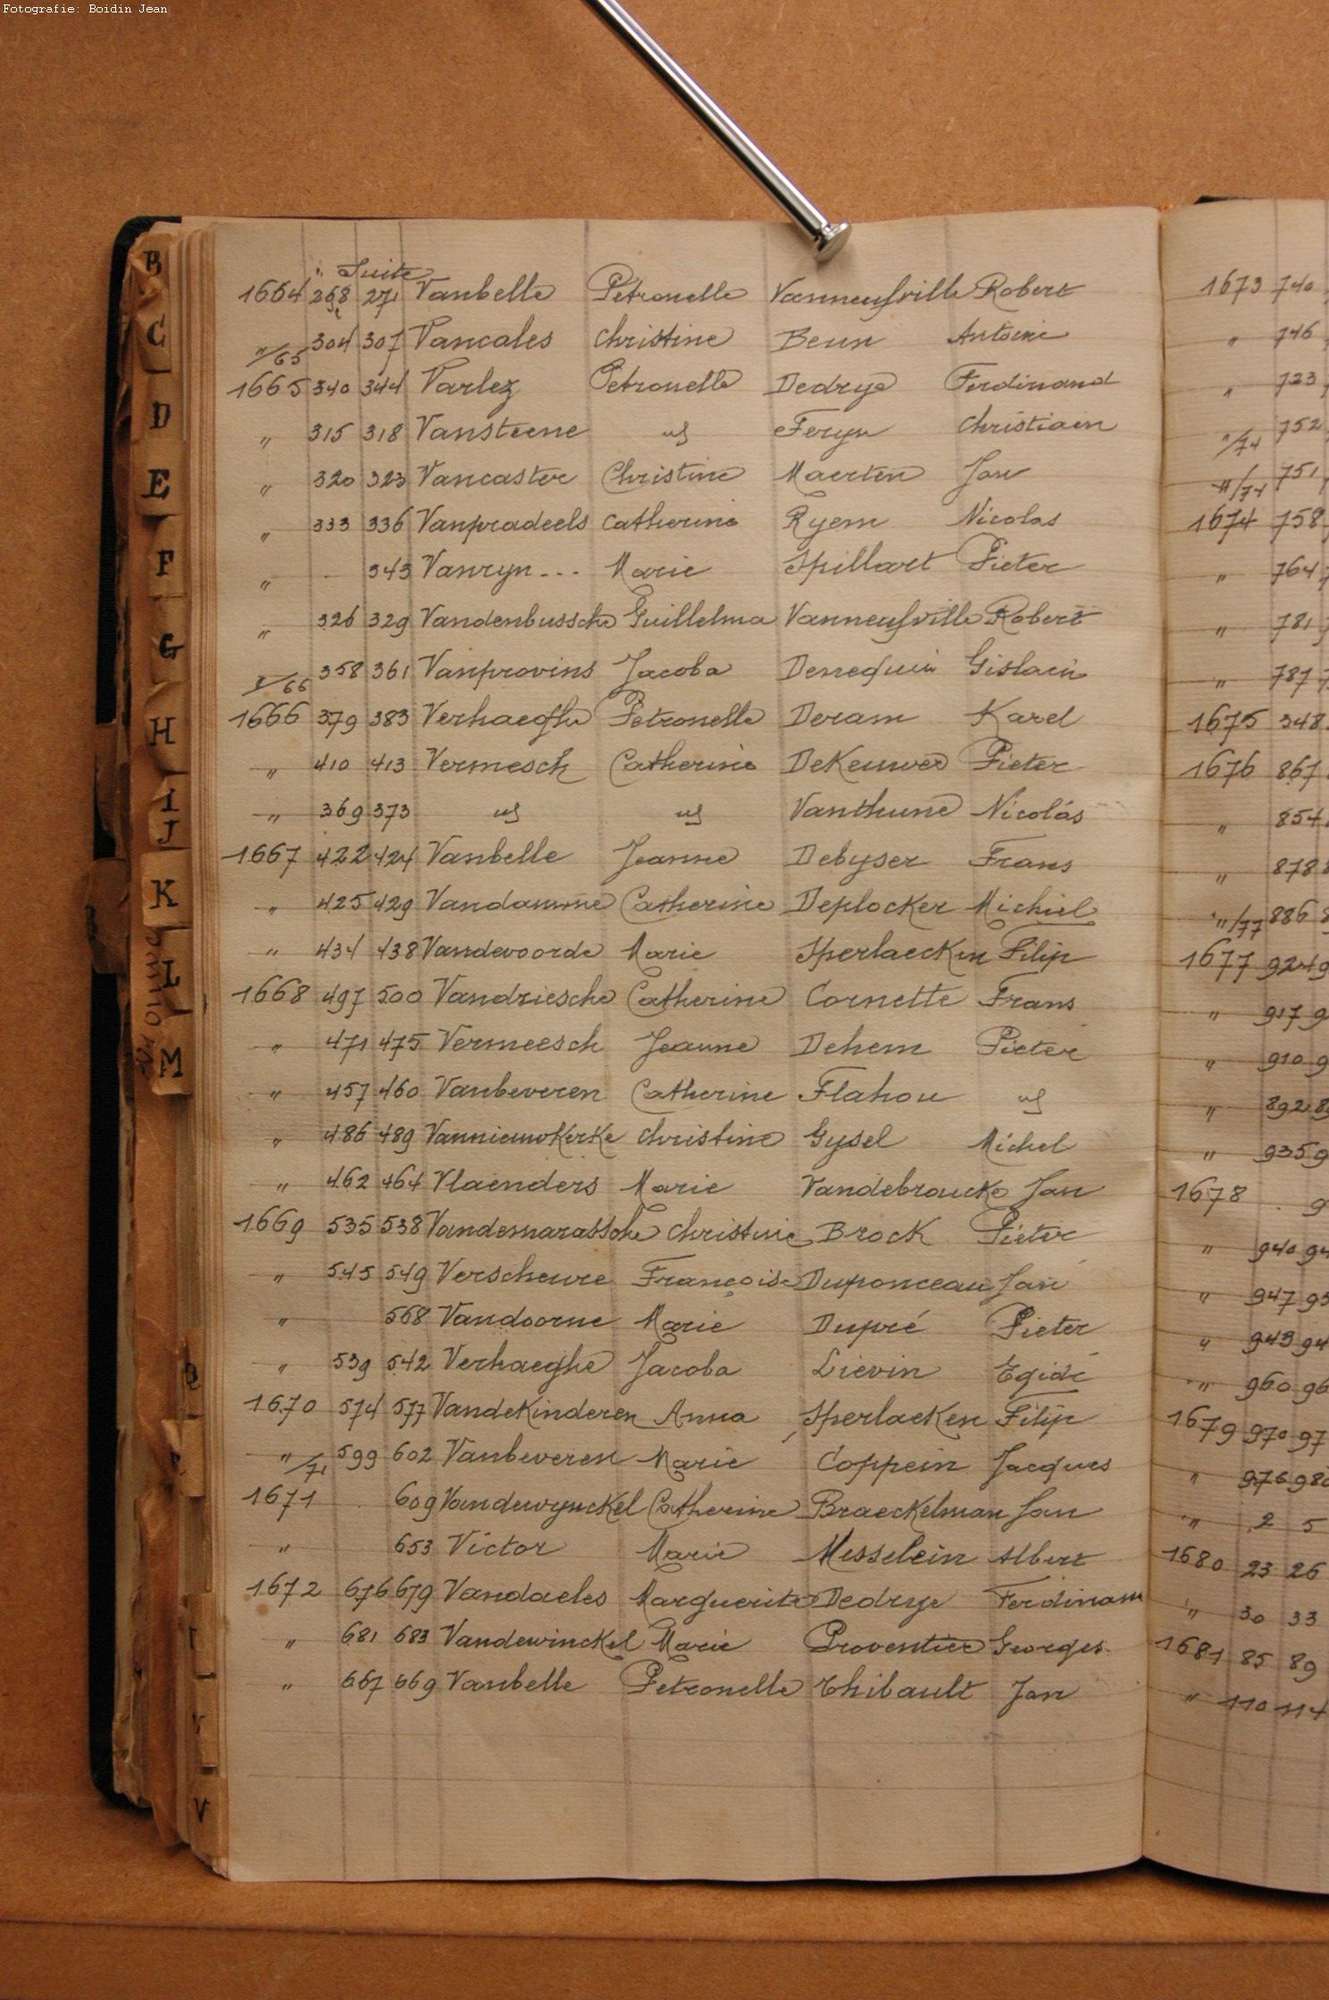 Fotografie: Boidin Jean
" Suite
1664 268 271 Vanbelle Pétronelle Vanneufville Robert
"/65 304 307 Vancales Christine Beun Antoine
1665 340 344 Varlez Petronelle Dedrye Ferdinand
" 315 318 Vansteene " Feryn Christiaen
" 320 323 Vancaster Christine Maerten Jan
" 333 336 Vanpradeels Catherine Ryem Nicolas
" - 343 Vanryn --- Marie Spillart Pieter
" 326 329 Vandenbussche Guillelma Vanneufville Robert
"/66 358 361 Vanprovins Jacoba Dennequin Gislain
1666 379 383 Verhaeghe Petronelle Deram Karel
" 410 413 Vermesch Catherine DeKeuwer Pieter
" 369 373 " " Vanthune Nicolas
1667 422 424 Vanbelle Jeanne Debyser Frans
" 425 429 Vandamme Catherine Deplocker Michiel
" 434 438 Vandevoorde Marie Sperlaecken Filip
1668 497 500 Vandriesche Catherine Cornette Frans
" 471 475 Vermeesch Jeanne Dehem Pieter
" 457 460 Vanbeveren Catherine Flahou "
" 486 489 VannieuwKerKe Christine Gysel Michel
" 462 464 Vlaenders Marie Vandebroucke Jan
1669 535 538 Vandemarassche Christine Brock Pieter
" 545 549 Verscheure Françoise Duponceau Jan
" 568 Vandoorne Marie Dupré Pieter
" 539 542 Verhaeghe Jacoba Lievin Egide
1670 574 577 VandeKinderen Anna SperlaeKen Filip
"/71 599 602 Vanbeveren Marie Coppein Jacques
1671 609 Vandewynckel Catherine Braeckelman Jan
" 653 Victor Marie Messelein Albert
1672 676 679 Vandaeles Marguerite Dedrye Ferdinam
" 681 683 Vandewinckel Marie Proventier Georges
" 667 669 Vanbelle Petronelle Thibault Jan
B
C
D
E
F
G
H
I
J
K
L
M
V
1673 740
" 746
" 723
"/74 752
"/74 751
1674 758
" 764
" 781
" 787
1675 348
1676 867
" 854
" 878
"/77 886
1677 924 9
" 917 9
" 910 9
" 892 8
" 935 9
1678 9
" 940 94
" 947 95
" 943 94
" 960 96
1679 970 97
" 976 980
" 2 5
1680 23 26
" 30 33
1681 85 89
" 110 114